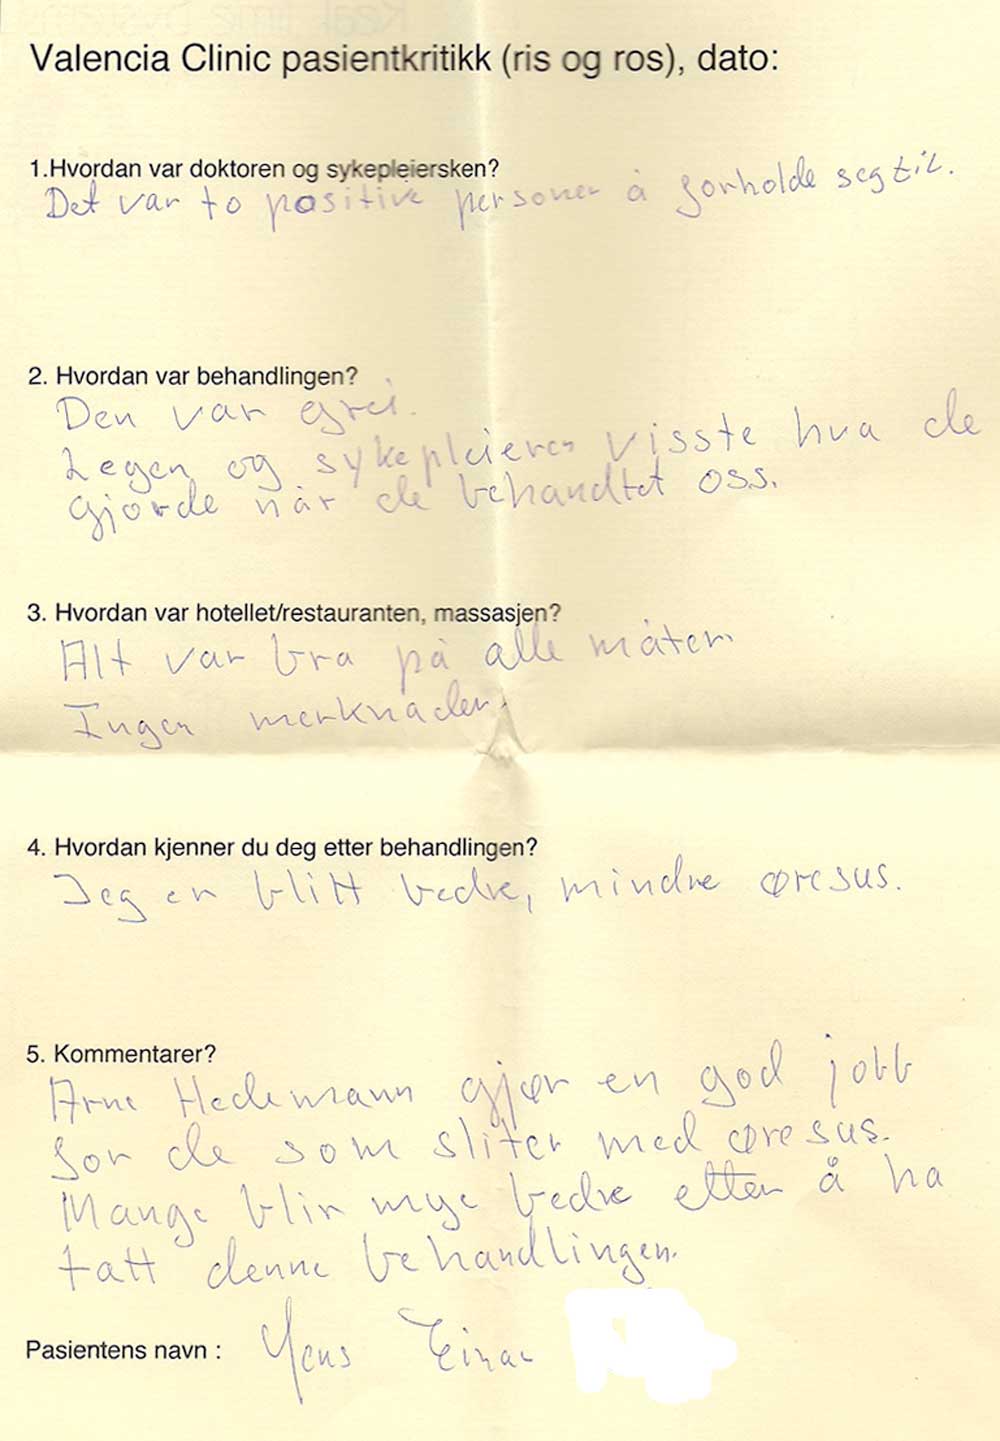 Valencia Clinic pasientkritikk (ris og ros), dato:
1.Hvordan var doktoren og sykepleiersken?
Det var to positive personer å forholde seg til.
2. Hvordan var behandlingen?
Den var grei.
Legen og sykepleieren visste hva de
gjorde når de behandlet oss.
3. Hvordan var hotellet/restauranten, massasjen?
Alt var bra på alle måter
Ingen merknader.
4. Hvordan kjenner du deg etter behandlingen?
Jeg er blitt bedre, mindre øresus.
5. Kommentarer?
Arne Hedemann gjør en god jobb
for de som sliter med øresus.
Mange blir mye bedre etter å ha
tatt denne behandlingen.
Pasientens navn : Jens Einar